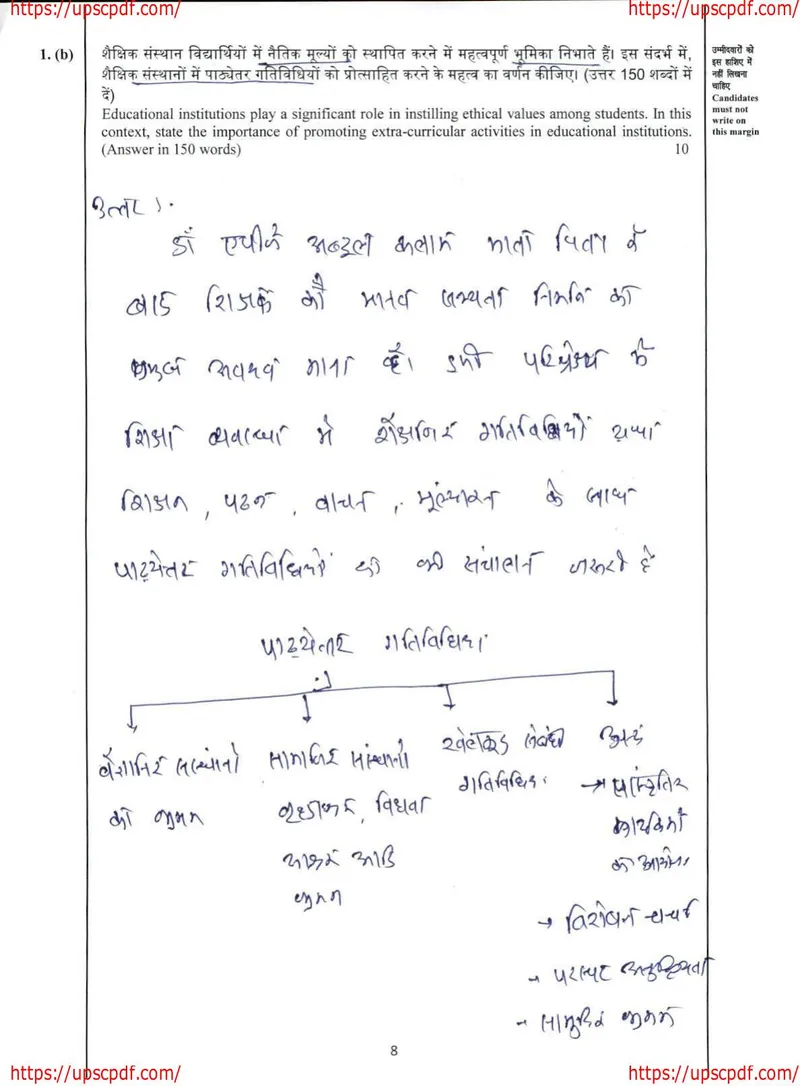 https://upscpdf.com/ https://upscpdf.com/
1. (b) शैक्षिक संस्थान विद्यार्थियों में नैतिक मूल्यों को स्थापित करने में महत्वपूर्ण भूमिका निभाते हैं। इस संदर्भ में,
शैक्षिक संस्थानों में पाठ्येतर गतिविधियों को प्रोत्साहित करने के महत्व का वर्णन कीजिए। (उत्तर 150 शब्दों में
दें)
Educational institutions play a significant role in instilling ethical values among students. In this
context, state the importance of promoting extra-curricular activities in educational institutions.
(Answer in 150 words) 10
उम्मीदवारों को
इस हाशिए में
नहीं लिखना
चाहिए
Candidates
must not
write on
this margin
उत्तर
डॉ एपीजे अब्दुल कलाम माता पिता के
बाद शिक्षक को मानव सभ्यता निर्माण का
प्रमुख अवयव माना है। इसी परिप्रेक्ष्य में
शिक्षा व्यवस्था में शैक्षनिक गतिविधियों यथा
शिक्षन, पठन, वाचन, मूल्यांकन के साथ
पाठ्येतर गतिविधियों का भी संचालन जरूरी है
पाठ्येतर गतिविधियां
सामाजिक संस्थानों
खेलकूद संबंधी
गतिविधि
को भ्रमन
वृद्धाश्रम, विधवा
आश्रम आदि
भ्रमन
→ सांस्कृतिक
कार्यक्रमों
का
→ चर्चा
→ परस्पर
→ सामुहिक भ्रमन
8
https://upscpdf.com/ https://upscpdf.com/